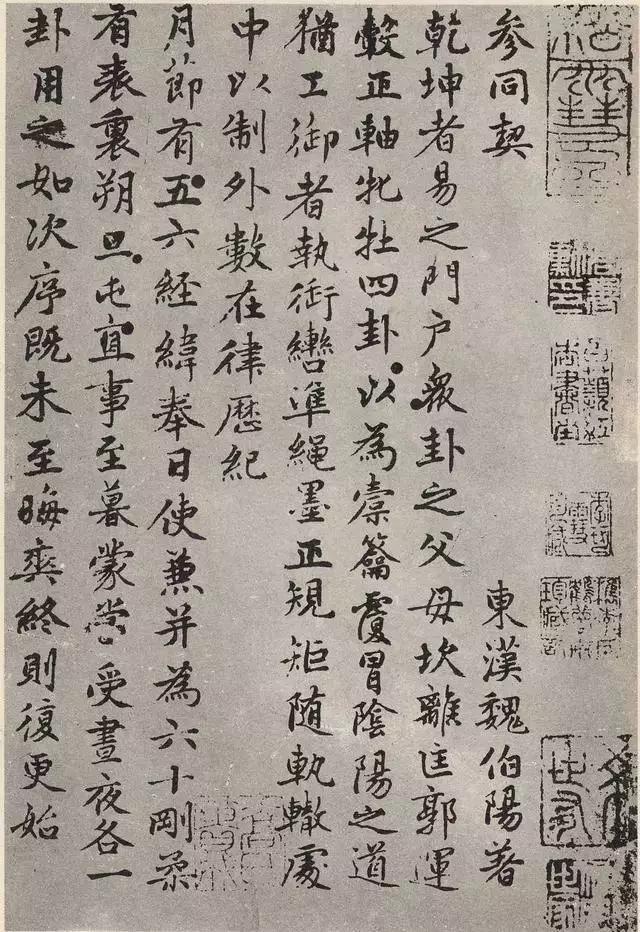 參同契
東漢魏伯陽著
乾坤者易之門户眾卦之父母坎離匡郭運
轂正軸牝牡四卦以為橐籥覆冒陰陽之道
猶工御者執銜轡準繩墨正規矩随軌轍處
中以制外數在律歷紀
月節有五六經緯奉日使蒹并為六十剛柔
有表裏朔旦屯直事至暮蒙當受晝夜各一
卦用之如次序既未至晦爽終則復更始